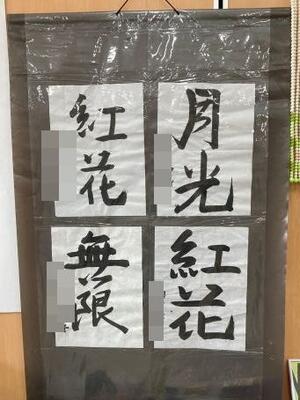 月光
紅花
紅花
無限